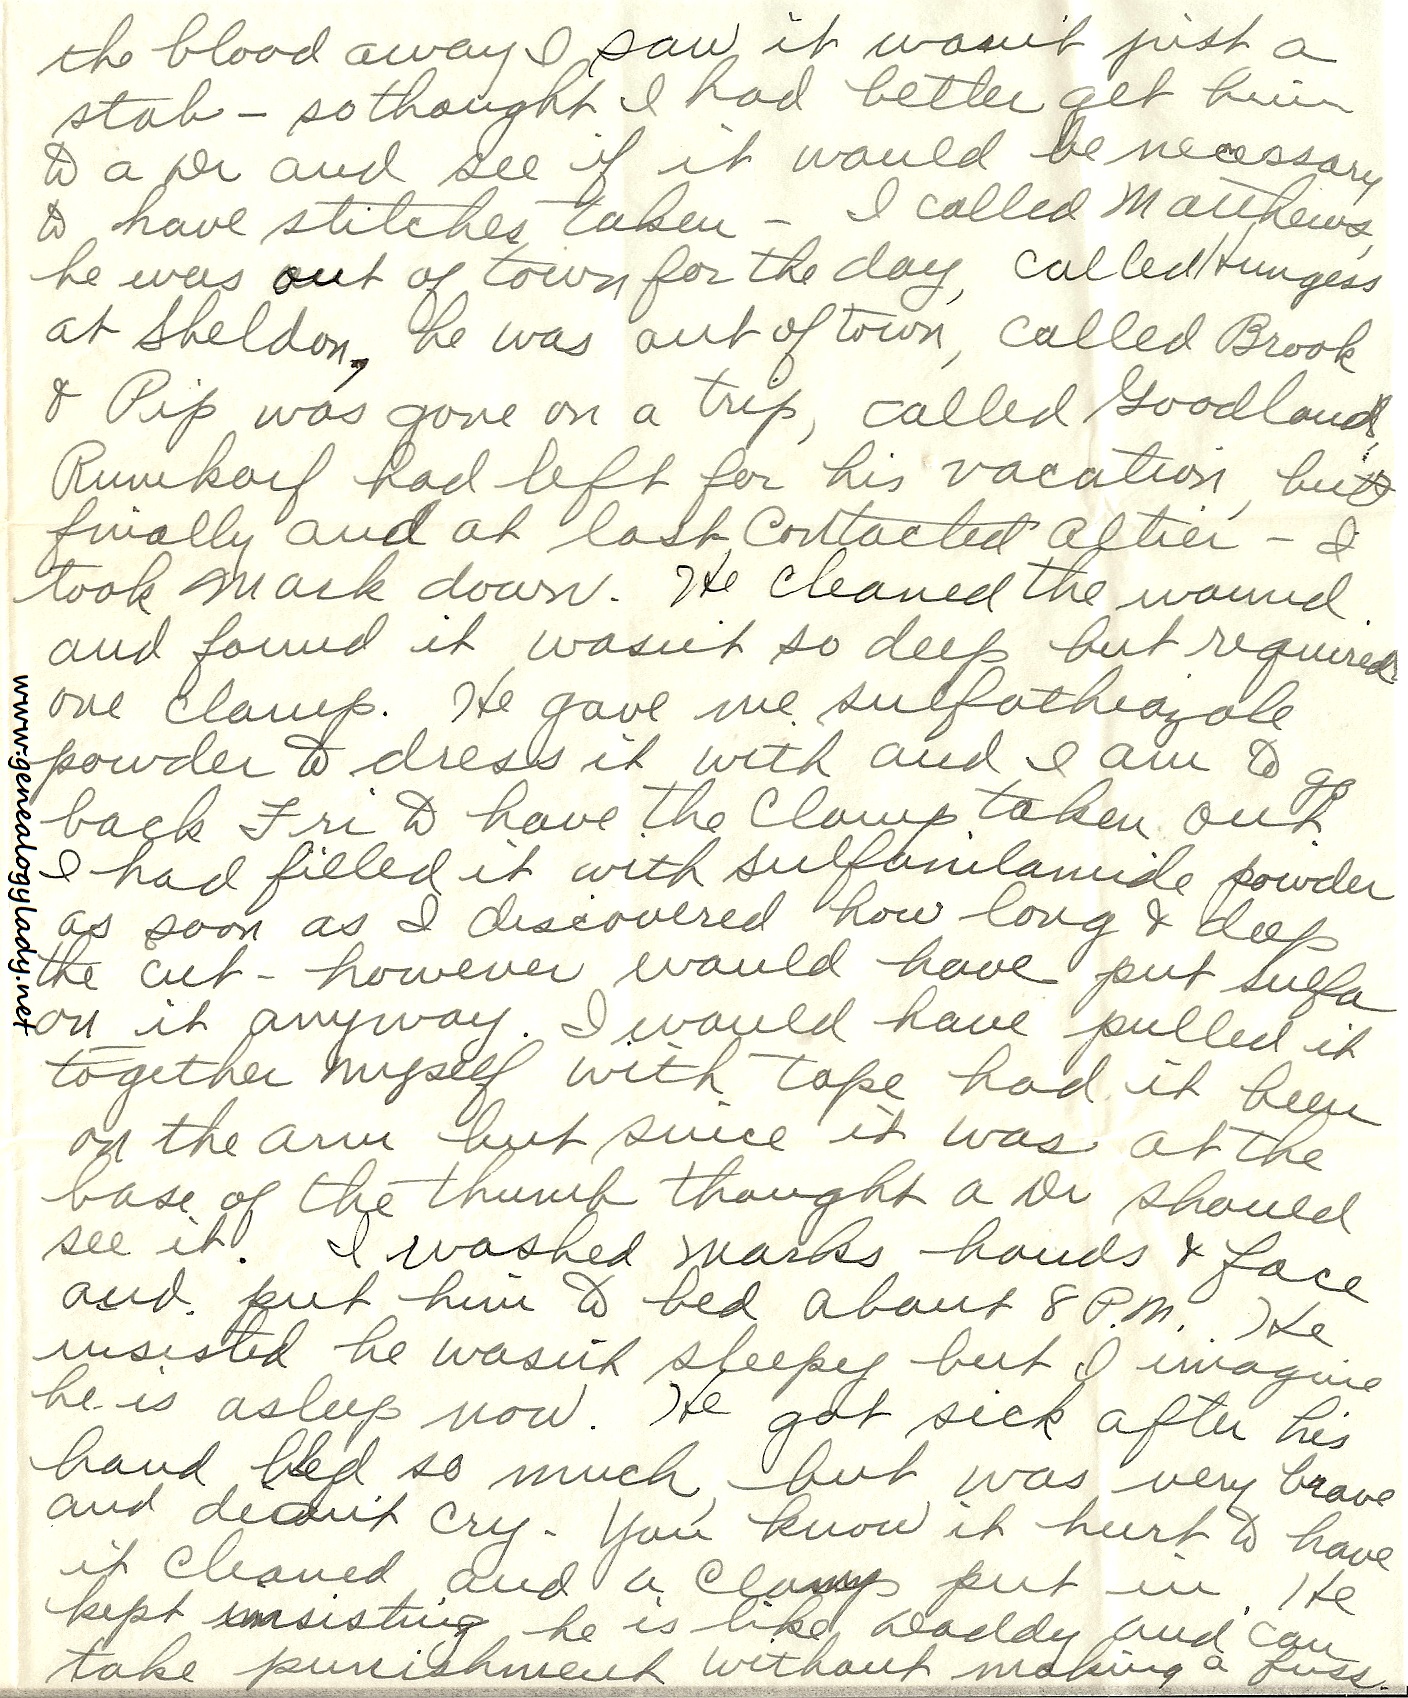 the blood away I saw it wasn't just a
stab - so thought I had better get him
to a Dr and see if it would be necessary
to have stitches taken - I called Matthews,
he was out of town for the day, called
at Sheldon, he was out of town, called Brook
& Pip was gone on a trip, called Goodland,
had left for his vacation, but
finally and at last contacted Altier - I
took Mark down. He cleaned the wound
and found it wasn't so deep but required
one clamp. He gave me sulfathiazole
powder to dress it with and I am to go
back Fri to have the clamp taken out
I had filled it with sulfanilamide powder
as soon as I discovered how long & deep
the cut - however would have put sulfa
on it anyway. I would have pulled it
together myself with tape had it been
on the arm but since it was at the
base of the thumb thought a Dr should
see it. I washed Marks hands & face
and put him to bed about 8 P.M. He
insisted he wasn't sleepy but I imagine
he is asleep now. He got sick after his
hand bled so much, but was very brave
and didn't cry. You know it hurt to have
it cleaned and a clamp put in. He
kept insisting he is like Daddy and can
take punishment without making a fuss.
www.genealogylady.net